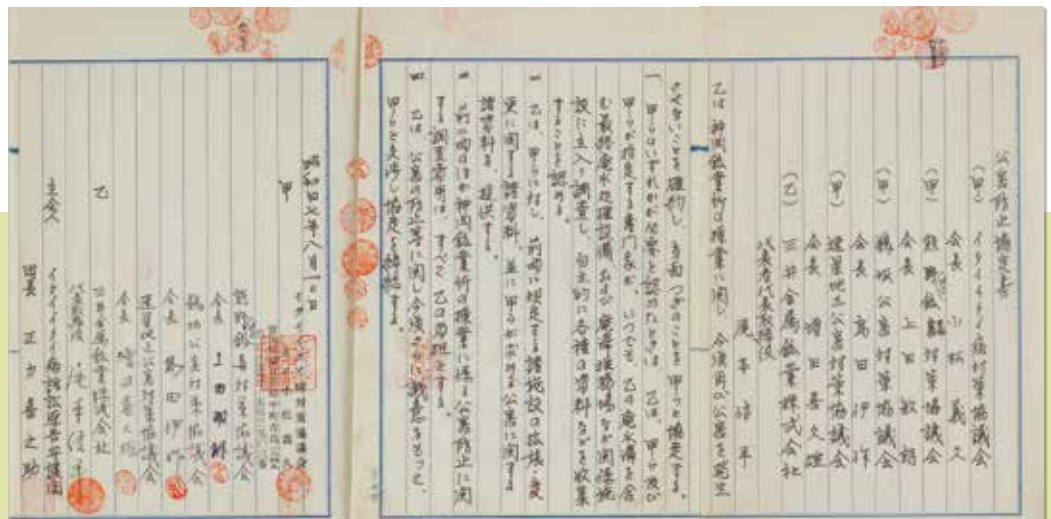 公害防止協定書
(甲) イタイイタイ病対策協議会
会長 小松義久
(甲) 熊野鉱害対策協議会
会長 上田敏朗
(甲) 鵜坂公害対策協議会
会長 高田伊作
(甲) 速星地区公害対策協議会
会長 増田喜久理
(乙) 三井金属鉱業株式会社
代表者代表取締役
尾本信平
乙は神岡鉱業所の操業に関し、今後再び公害を発生
させないことを確約し、当面つぎのことを甲らと協定する。
一 甲らのいずれかが必要と認めたときは、乙は、甲ら及び
甲らが指定する専門家が、いつでも、乙の廃水溝を含
む最終廃水処理設備および廃滓堆積場など関係施
設に立入り調査し、自主的に各種の資料などを収集
することを認める。
二 乙は、甲らに対し、前項に規定する諸施設の拡張・変
更に関する諸資料、並に甲らが求める公害に関する
諸資料を、提供する。
三 前二項のほか神岡鉱業所の操業に係る公害防止に関
する調査費用は、すべて乙の負担とする。
四 乙は、公害の防止等に関し今後さらに誠意をもって、
甲らと交渉し協定を締結する。
昭和四七年八月一〇日
甲
会長 小松義久
熊野鉱害対策協議会
会長 上田敏朗
鵜坂公害対策協議会
会長 高田伊作
速星地区公害対策協議会
会長 増田喜久理
乙
三井金属鉱業株式会社
代表取締役 尾本信平
立会人
イタイイタイ病訴訟原告弁護団
団長 正力喜之助